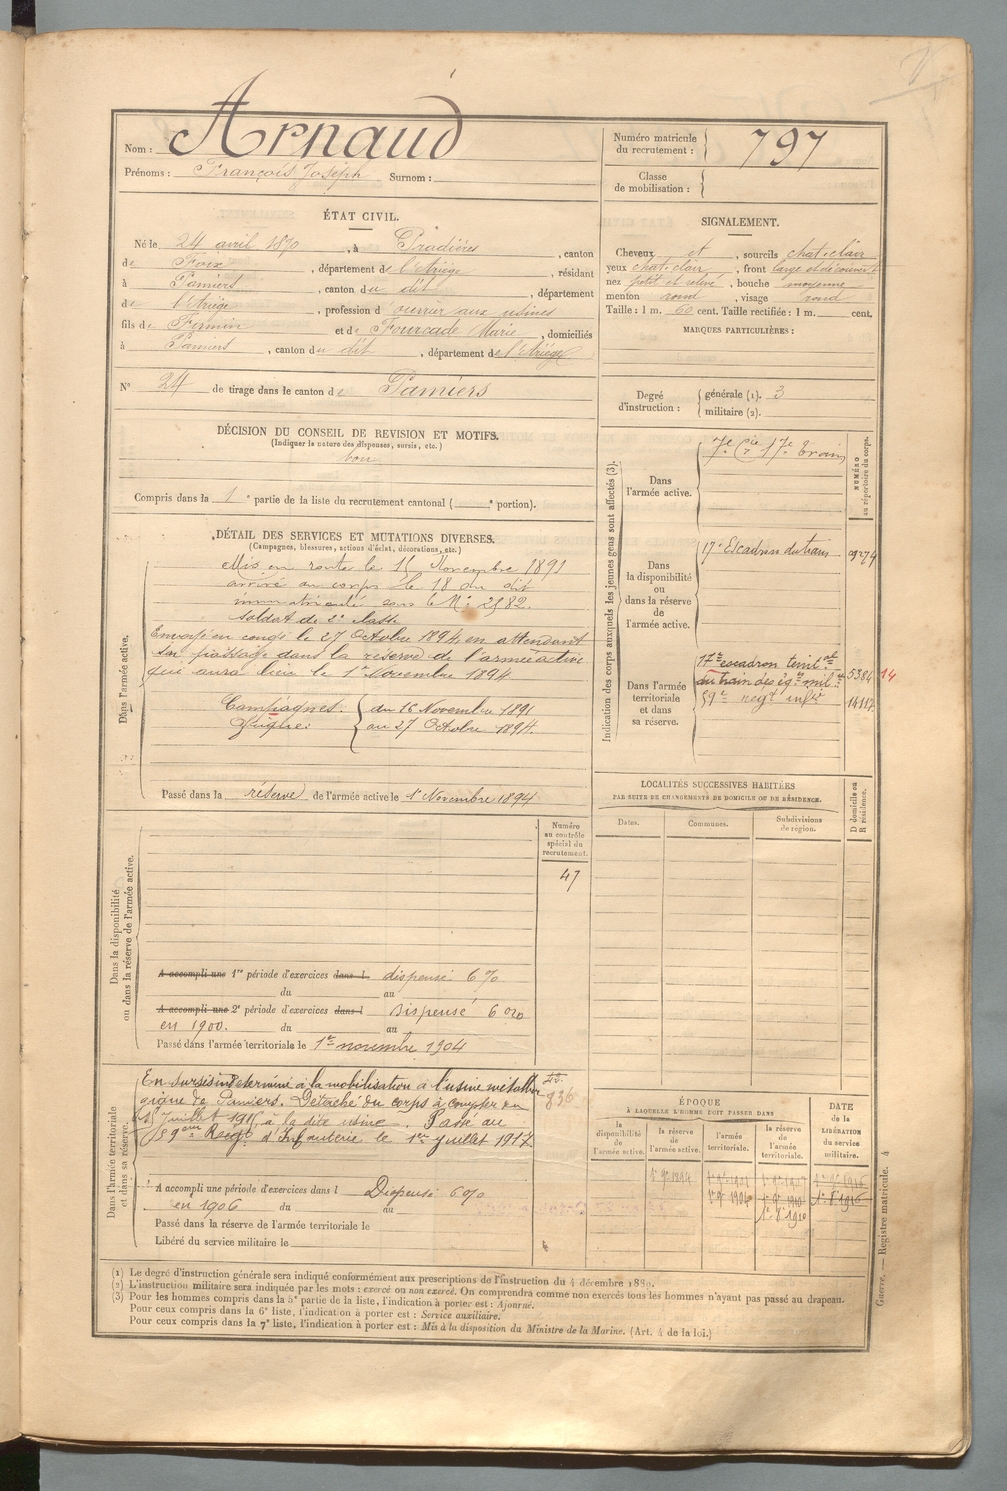 Nom : Arnaud
Prénoms : François Joseph Surnom :
Numéro matricule du recrutement : 797
Classe de mobilisation :
ÉTAT CIVIL.
Né le 24 avril 1870, à Pradières, canton
de Foix, département de l'Ariège, résidant
à Pamiers, canton du dit, département
de l'Ariège, profession d'ouvrier aux usines
fils de Firmin et de Fourcade Marie, domiciliés
à Pamiers, canton du dit, département de l'Ariège
N° 24 de tirage dans le canton de Pamiers
SIGNALEMENT.
Cheveux et, sourcils chat-clair
yeux chat-clair, front large et découvert
nez petit et relevé, bouche moyenne
menton rond, visage rond
Taille : 1 m. 60 cent. Taille rectifiée : 1 m. cent.
MARQUES PARTICULIÈRES :
Degré d'instruction : générale (1). 3
militaire (2).
DÉCISION DU CONSEIL DE REVISION ET MOTIFS.
(Indiquer la nature des dispenses, sursis, etc.)
bon
Compris dans la 1e partie de la liste du recrutement cantonal ( e portion).
DÉTAIL DES SERVICES ET MUTATIONS DIVERSES.
(Campagnes, blessures, actions d'éclat, décorations, etc.)
Dans l'armée active.
Mis en route le 15 Novembre 1891
arrivé au corps le 18 du dit
immatriculé sous le N° 2582.
Soldat de 2e classe
Envoyé en congé le 27 Octobre 1894 en attendant
son passage dans la réserve de l'armée active
qui aura lieu le 1er Novembre 1894
Campagnes: du 16 Novembre 1891
au 27 Octobre 1894.
Passé dans la réserve de l'armée active le 1er Novembre 1894
Indication des corps auxquels les jeunes gens sont affectés (3).
NUMÉRO au répertoire du corps.
Dans l'armée active.
7e Cie 17e train
Dans la disponibilité ou dans la réserve de l'armée active.
17e Escadron du train 9274
Dans l'armée territoriale et dans sa réserve.
17e escadron territal
du train des éqges milres 5384 14
59e regt infie 14117
LOCALITÉS SUCCESSIVES HABITÉES
PAR SUITE DE CHANGEMENTS DE DOMICILE OU DE RÉSIDENCE.
Dates. Communes. Subdivisions de région. D domicile ou R résidence.
Dans la disponibilité ou dans la réserve de l'armée active.
Numéro au contrôle spécial du recrutement.
47
A accompli une 1re période d'exercices dans l dispensé 6 %
du au
A accompli une 2e période d'exercices dans l Dispensé 6 %
en 1900. du au
Passé dans l'armée territoriale le 1er novembre 1904
Dans l'armée territoriale et dans sa réserve.
En sursis indéterminé à la mobilisation à l'usine métallur
gique de Pamiers. Détaché du corps à compter du
Juillet 191, à la dite usine. Passé au
59eme Regt d'Infanterie le 1er juillet 1917.
836
A accompli une période d'exercices dans l Dispensé 6 %
en 1906 du au
Passé dans la réserve de l'armée territoriale le
Libéré du service militaire le
ÉPOQUE
À LAQUELLE L'HOMME DOIT PASSER DANS
DATE de la LIBÉRATION du service militaire.
la disponibilité de l'armée active.
la réserve de l'armée active.
l'armée territoriale.
la réserve de l'armée territoriale.
1er 9bre 1894
1er 9bre 1904 1er 9bre 1910
Guerre. — Registre matricule. 4
(1) Le degré d'instruction générale sera indiqué conformément aux prescriptions de l'instruction du 4 décembre 1889.
(2) L'instruction militaire sera indiquée par les mots : exercé ou non exercé. On comprendra comme non exercés tous les hommes n'ayant pas passé au drapeau.
(3) Pour les hommes compris dans la 5e partie de la liste, l'indication à porter est : Ajourné.
Pour ceux compris dans la 6e liste, l'indication à porter est : Service auxiliaire.
Pour ceux compris dans la 7e liste, l'indication à porter est : Mis à la disposition du Ministre de la Marine. (Art. 4 de la loi.)